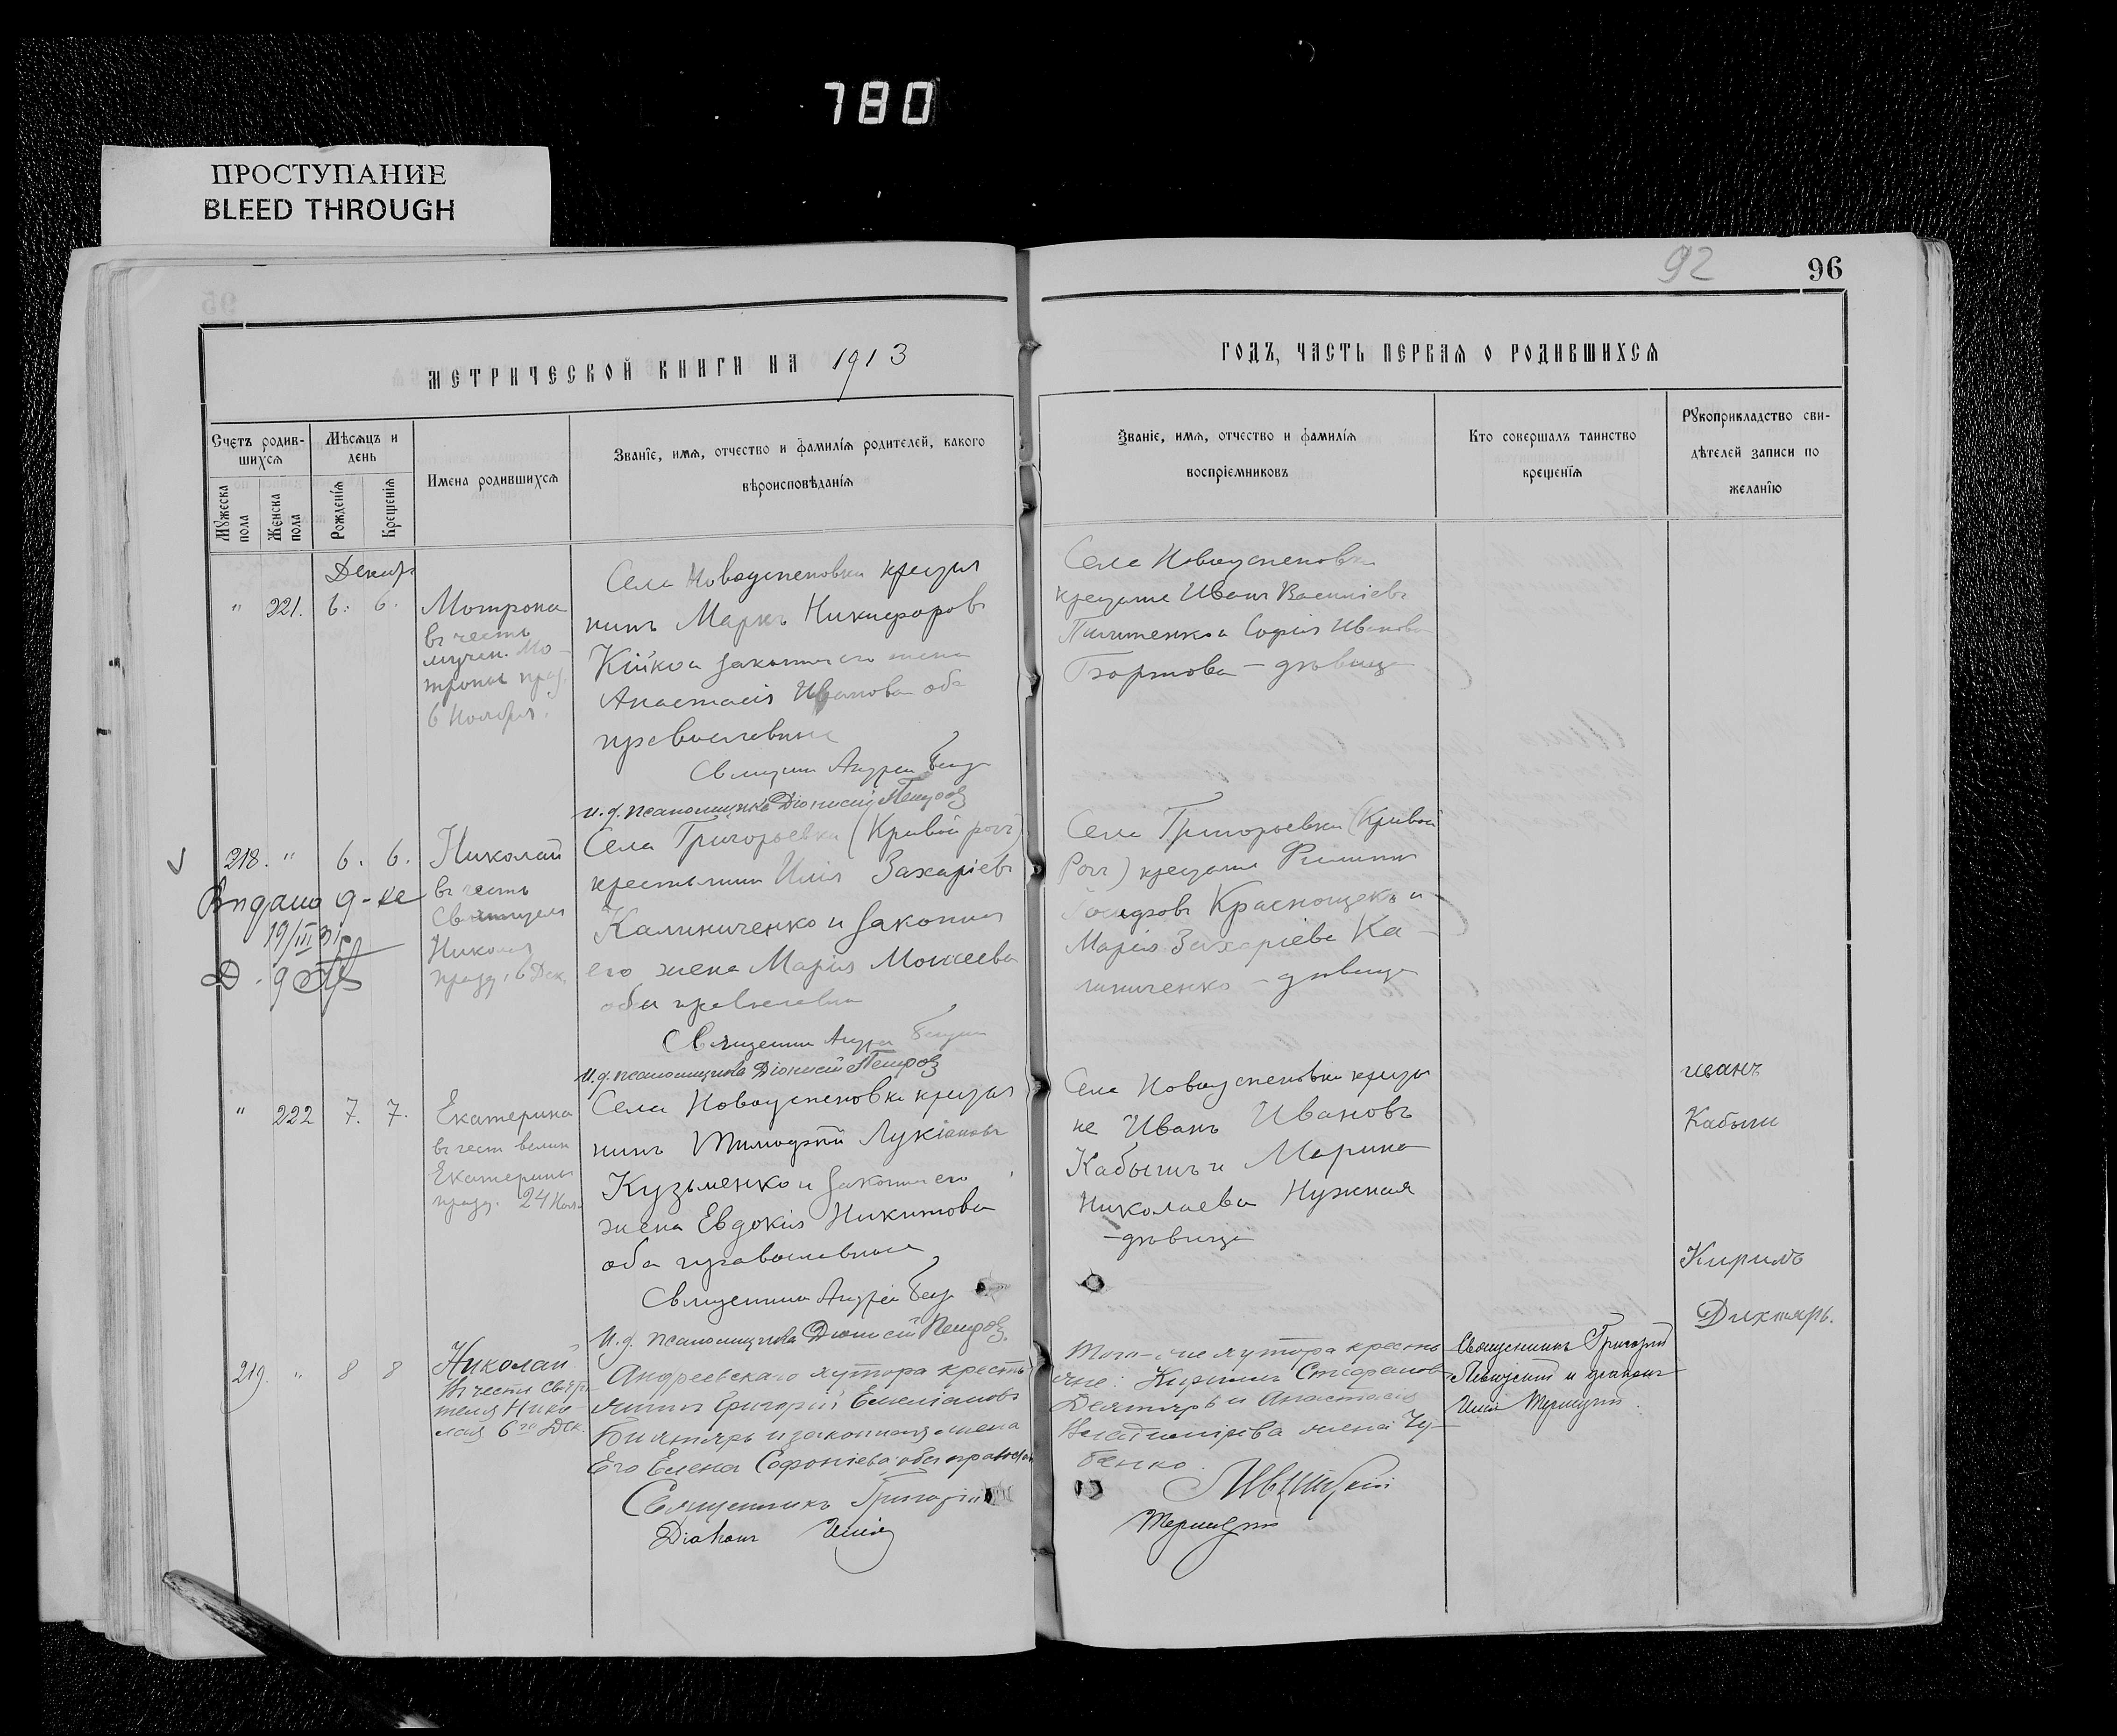 780
ПРОСТУПАНИЕ
BLEED THROUGH
92
96
МЕТРИЧЕСКОЙ КНИГИ НА 1913
ГОДЪ, ЧАСТЬ ПЕРВАЯ О РОДИВШИХСЯ
Счетъ родив-
шихся
Мѣсяцъ и
день
Мужеска
пола
Женска
пола
Рожденія
Крещенія
Имена родившихся
Званіе, имя, отчество и фамилія родителей, какого
вѣроисповѣданія
Званіе, имя, отчество и фамилія
воспріемниковъ
Кто совершалъ таинство
крещенія
Рукоприкладство сви-
дѣтелей записи по
желанію
Декабр
" 221. 6. 6.
Мотрона
въ честь
мучен. Мо-
троны празд.
6 Ноября.
Села Новоуспеновки крестья
нинъ Маркъ Никифоровъ
Кійко и законная его жена
Анастасія Иванова оба
православные
Священник Андрей
и.д. псаломщика Діонисій Петровъ
Села Новоуспеновки
крестьяне Иванъ Васильевъ
Пилипенко и Софія Иванова
дѣвица
218. " 6. 6.
Видано д-ке
19/III 31
Николай
въ честь
Святителя
Николая
празд. 6 Дек.
Села Григорьевки (Кривой рогъ)
крестьянинъ Илія Захаріевъ
Калиниченко и законная
его жена Марія Моисеева
оба православные
Священник Андрей
И.д. псаломщика Діонисій Петровъ
Села Григорьевки (Кривой
Рогъ) крестьяне Филиппъ
Іосифовъ Краснощекъ и
Марія Захаріева Ка-
линиченко - дѣвица
" 222 7. 7.
Екатерина
въ честь велик
Екатерины
празд. 24 Нояб.
Села Новоуспеновки крестья
нинъ Тимофей Лукіановъ
Кузьменко и законная его
жена Евдокія Никитова
оба православные
Священник Андрей
И.д. псаломщика Діонисій Петровъ.
Села Новоуспеновки крестья
не Иванъ Ивановъ
Кабышъ и Марина
Николаева Нужная
-дѣвица
иванъ
Кабыш
Кирилъ
Дихтярь.
219. " 8 8
Николай
Въ честь Святи-
теля Нико-
лая 6го Дек.
Андреевскаго хутора кресть-
янинъ Григорій Емеліановъ
и законная жена
Его Елена Софоніева оба правосл
Священникъ Григорій
Діаконъ Илія
Того-же хутора кресть
яне: Кириллъ Стефановъ
Дехтярь и Анастасія
Владимірова жена Чу-
бенко.
Священникъ Григорій
и діаконъ
Илія